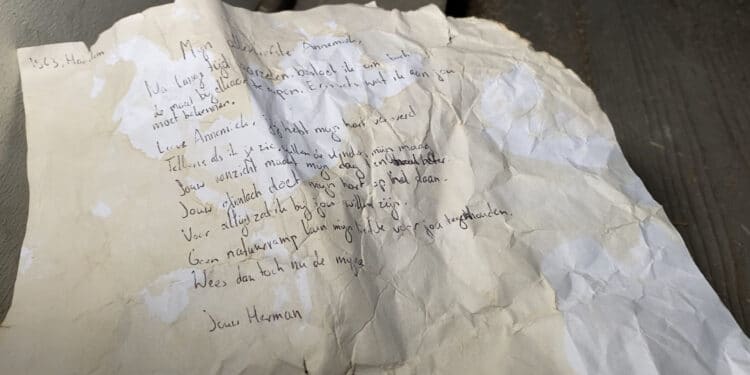 1563, Haarlem
Mijn allerliefste Annemiek,
Na lang tijd aarzelen besloot ik een
de moed bij elkaar te rapen. Er is iets wat ik aan jou
moet bekennen.
Lieve Annemiek, jij hebt mijn hart veroverd
Telkens als ik je zie, vullen de vlinders mijn maag
Jouw aanzicht maakt mijn dag en beter.
Jouw glimlach doet mijn hart op hol slaan.
Voor altijd zal ik bij jou willen zijn.
Geen natuurramp kan mijn liefde voor jou tegenhouden.
Wees dan toch nu de mijne
Jouw Herman